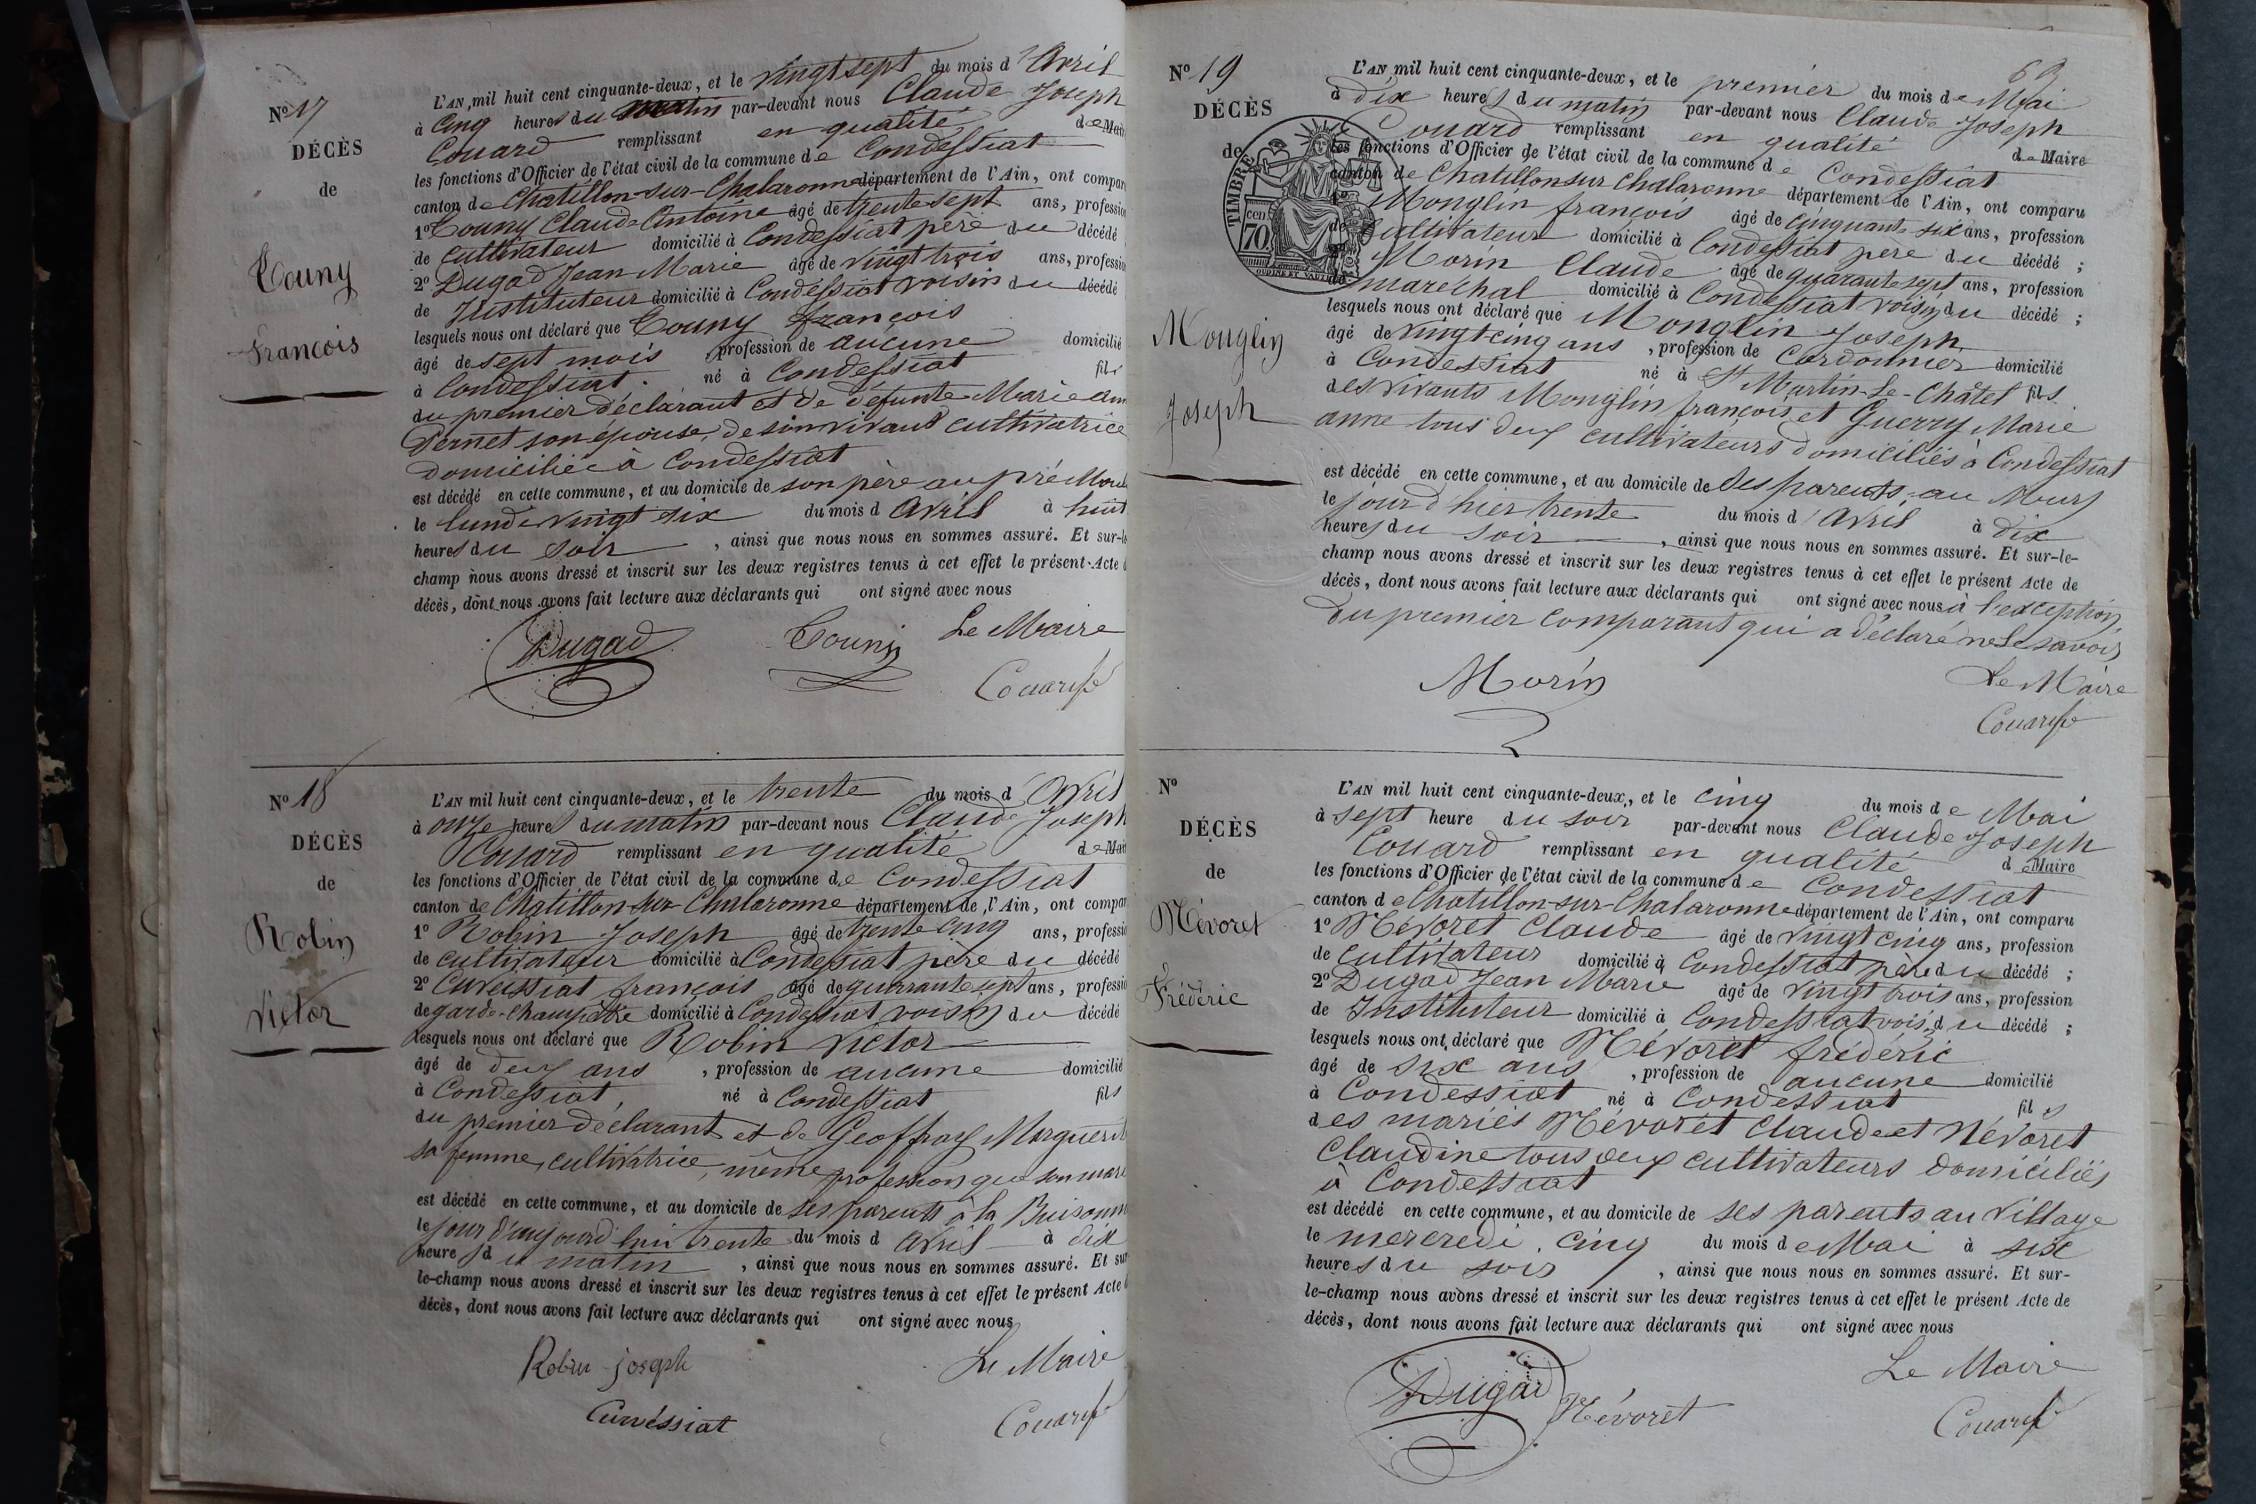 N° 17
DÉCÈS
de
Touny
François
L'AN mil huit cent cinquante-deux, et le vingt sept du mois d'Avril
à cinq heures du matin par-devant nous Claude Joseph
Couard remplissant en qualité de Mai
les fonctions d'Officier de l'état civil de la commune de Condessiat
canton de Chatillon-sur-Chalaronne département de l'Ain, ont compar
1° Touny Claude Antoine âgé de trente sept ans, professio
de cultivateur domicilié à Condessiat père du décédé
2° Dugad Jean Marie âgé de vingt trois ans, professio
de Instituteur domicilié à Condessiat voisin du décédé
lesquels nous ont déclaré que Touny françois
âgé de sept mois, profession de aucune domicilié
à Condessiat. né à Condessiat fils
du premier déclarant et de défunte Marie ann
Pernet son épouse, de son vivant cultivatrice
domiciliée à Condessiat
est décédé en cette commune, et au domicile de son père au pré
le lundi vingt six du mois d Avril à huit
heures du soir, ainsi que nous nous en sommes assuré. Et sur-le
champ nous avons dressé et inscrit sur les deux registres tenus à cet effet le présent Acte d
décès, dont nous avons fait lecture aux déclarants qui ont signé avec nous
Dugad Touny Le Maire
Couard
N° 18
DÉCÈS
de
Robin
Victor
L'AN mil huit cent cinquante-deux, et le trente du mois d'Avril
à onze heures du matin par-devant nous Claude Joseph
Couard remplissant en qualité de Mai
les fonctions d'Officier de l'état civil de la commune de Condessiat
canton de Chatillon-sur-Chalaronne département de l'Ain, ont compar
1° Robin Joseph âgé de trente cinq ans, professio
de cultivateur domicilié à Condessiat père du décédé
2° Cuvessiat françois âgé de quarante sept ans, professio
de garde-champêtre domicilié à Condessiat voisin du décédé
lesquels nous ont déclaré que Robin Victor
âgé de deux ans, profession de aucune domicilié
à Condessiat, né à Condessiat fils
du premier déclarant et de Geoffray Marguerit
sa femme, cultivatrice, même profession que son mari
est décédé en cette commune, et au domicile de ses parents à la
le jour d'aujourd'hui trente du mois d Avril à dix
heures du matin, ainsi que nous nous en sommes assuré. Et sur
le-champ nous avons dressé et inscrit sur les deux registres tenus à cet effet le présent Acte d
décès, dont nous avons fait lecture aux déclarants qui ont signé avec nous
Robin joseph Le Maire
Cuvéssiat Couard
69
N° 19
DÉCÈS
de
TIMBRE
70 CEN
Monglin
Joseph
L'AN mil huit cent cinquante-deux, et le premier du mois de Mai
à dix heures du matin par-devant nous Claude Joseph
Couard remplissant en qualité de Maire
les fonctions d'Officier de l'état civil de la commune de Condessiat
canton de Chatillon sur Chalaronne département de l'Ain, ont comparu
1° Monglin françois âgé de cinquante six ans, profession
de cultivateur domicilié à Condessiat père du décédé ;
2° Morin Claude âgé de quarante sept ans, profession
de maréchal domicilié à Condessiat voisin du décédé ;
lesquels nous ont déclaré que Monglin Joseph
âgé de vingt-cinq ans, profession de Cordonnier domicilié
à Condessiat né à St Martin-Le-Châtel fils
des vivants Monglin françois et Guerry Marie
anne tous deux cultivateurs domiciliés à Condessiat
est décédé en cette commune, et au domicile de ses parents, au Murs
le jour d'hier trente du mois d'Avril à dix
heures du soir, ainsi que nous nous en sommes assuré. Et sur-le-
champ nous avons dressé et inscrit sur les deux registres tenus à cet effet le présent Acte de
décès, dont nous avons fait lecture aux déclarants qui ont signé avec nous à l'exception
du premier comparant qui a déclaré ne le savoir
Morin Le Maire
Couard
N°
DÉCÈS
de
Névoret
Frédéric
L'AN mil huit cent cinquante-deux, et le cinq du mois de Mai
à sept heure du soir par-devant nous Claude Joseph
Couard remplissant en qualité de Maire
les fonctions d'Officier de l'état civil de la commune de Condessiat
canton de Chatillon-sur-Chalaronne département de l'Ain, ont comparu
1° Névoret Claude âgé de vingt cinq ans, profession
de cultivateur domicilié à Condessiat père du décédé ;
2° Dugad Jean Marie âgé de vingt trois ans, profession
de Instituteur domicilié à Condessiat vois. du décédé ;
lesquels nous ont déclaré que Névoret frédéric
âgé de six ans, profession de aucune domicilié
à Condessiat né à Condessiat fils
des mariés Névoret Claude et Névoret
Claudine tous deux cultivateurs domiciliés
à Condessiat
est décédé en cette commune, et au domicile de ses parents au village
le mercredi cinq du mois de Mai à six
heures du soir, ainsi que nous nous en sommes assuré. Et sur-
le-champ nous avons dressé et inscrit sur les deux registres tenus à cet effet le présent Acte de
décès, dont nous avons fait lecture aux déclarants qui ont signé avec nous
Dugad Névoret Le Maire
Couard